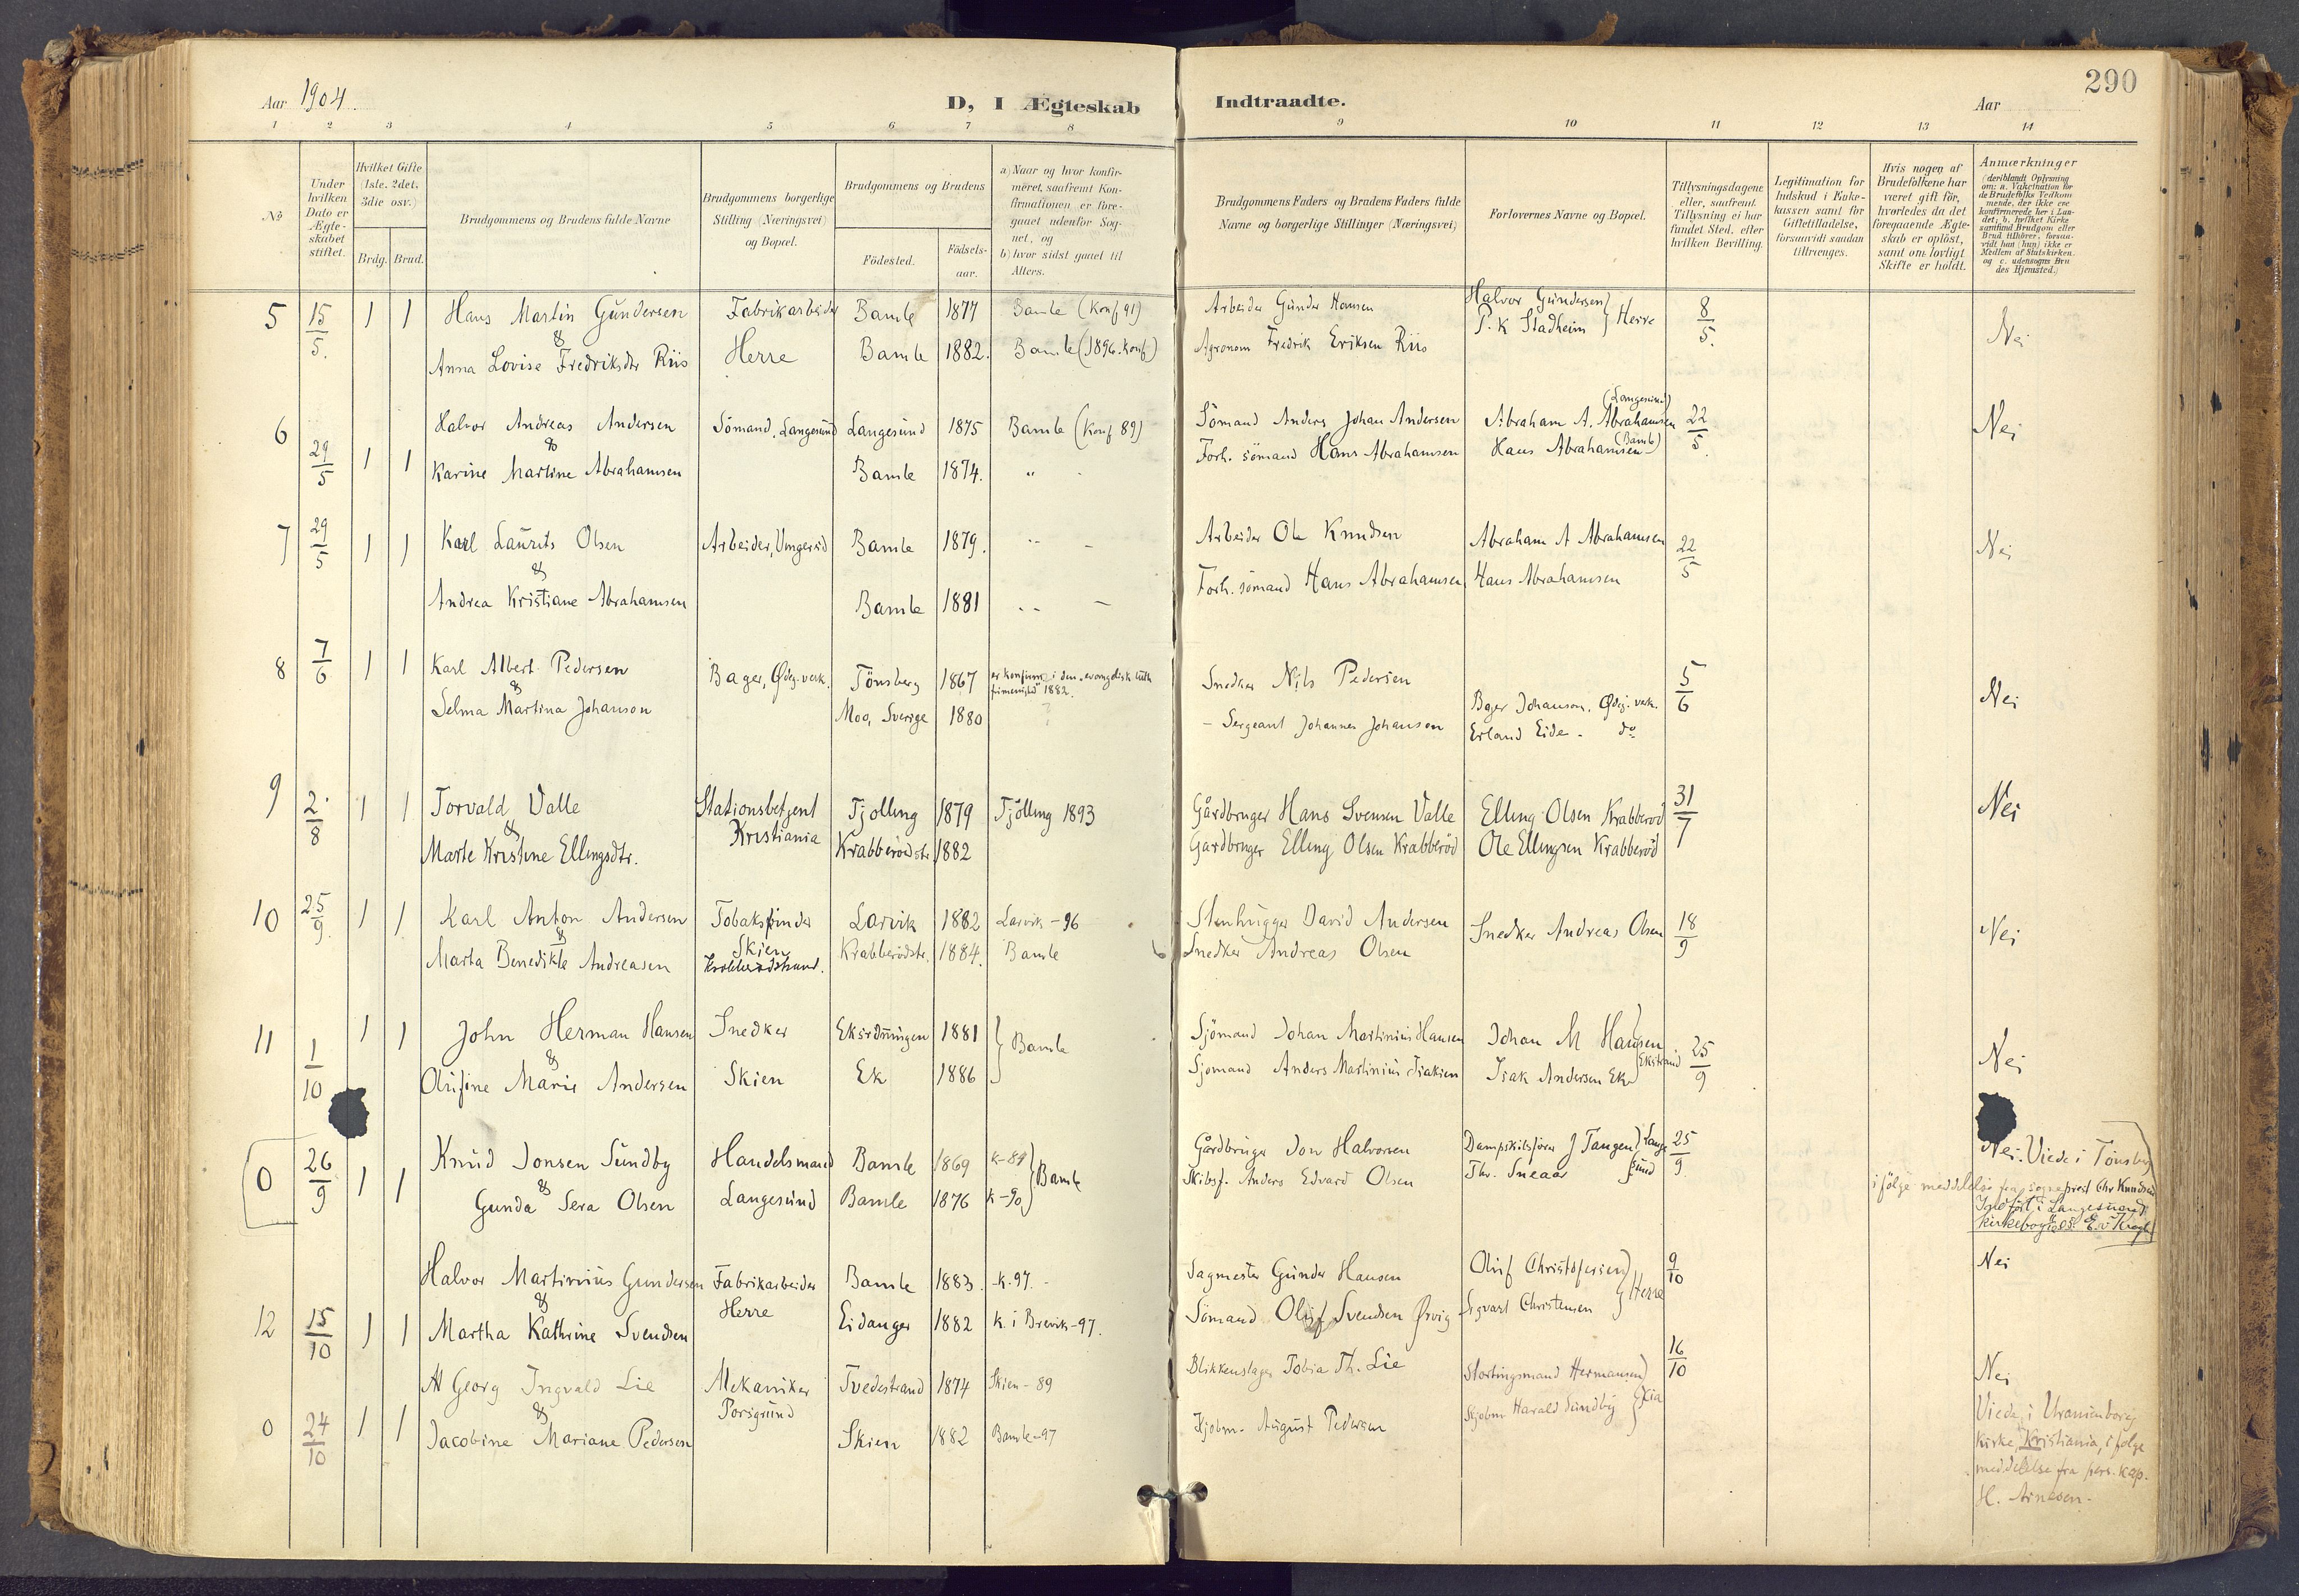 290
Aar 1904.
D, I Ægteskab Indtraadte.
Aar
1 2 3 4 5 6 7 8 9 10 11 12 13 14
No
Under hvilken Dato er Ægteskabet stiftet.
Hvilket Gifte (1ste, 2det, 3die osv.)
Brdg. Brud.
Brudgommens og Brudens fulde Navne
Brudgommens borgerlige Stilling (Næringsvei) og Bopæl.
Brudgommens og Brudens
Födested.
Födselsaar.
a) Naar og hvor konfirmeret, saafremt Konfirmationen er foregaaet udenfor Sognet, og
b) hvor sidst gaaet til Alters.
Brudgommens Faders og Brudens Faders fulde Navne og borgerlige Stillinger (Næringsvei)
Forlovernes Navne og Bopæl.
Tillysningsdagene eller, saafremt Tillysning ei har fundet Sted, efter hvilken Bevilling.
Legitimation for Indskud i Enkekassen samt for Giftetilladelse, forsaavidt saadan tiltrænges.
Hvis nogen af Brudefolkene har været gift för, hvorledes da det foregaaende Ægteskab er oplöst, samt om lovligt Skifte er holdt.
Anmærkninger (deriblandt Oplysning om: a. Vakcination for de Brudefolks Vedkommende, der ikke ere konfirmerede her i Landet; b. hvilket Kirkesamfund Brudgom eller Brud tilhörer, forsaavidt han (hun) ikke er Medlem af Statskirken, og c. udensogns Brudes Hjemsted.)
5 15/5. 1 1 Hans Martin Gundersen Fabrikarbeider Bamle 1877 Bamle (Konf 91) Arbeider Gunder Hansen Halvor Gundersen } Herre 8/5. Nei
&
Anna Lovise Fredriksdtr Riis Herre Bamle 1882. Bamle (1896. konf) Agronom Fredrik Eriksen Riis P. K Stadheim
6 29/5 1 1 Halvor Andreas Andersen Sömand. Langesund Langesund 1875 Bamle (Konf 89) Sömand Anders Johan Andersen Abraham A. Abrahamsen (Langesund) 22/5. Nei
&
Karine Martine Abrahamsen Bamle 1874. " Forh. sömand Hans Abrahamsen Hans Abrahamsen (Bamle)
7 29/5 1 1 Karl Laurits Olsen Arbeider, Ungersid Bamle 1879. " – Arbeider Ole Knudsen Abraham A Abrahamsen 22/5 Nei
&
Andrea Kristiane Abrahamsen Bamle 1881 " – Forh. sömand Hans Abrahamsen Hans Abrahamsen
8 7/6 1 1 Karl Albert Pedersen Bager, Ødeg. verk. Tönsberg 1867 er konfirm. i den "evangelisk luth frimenighed" 1882. Snedker Nils Pedersen 5/6 Nei
&
Selma Martina Johanson Moo, Sverige 1880 ? – Sergeant Johannes Johansen Bager Johanson. Ødeg. verk.
Erland Eide – do
9 2/8 1 1 Torvald Valle Stationsbetjent Tjölling 1879 Tjölling 1893 Gårdbruger Hans Svensen Valle Elling Olsen Krabberöd 31/7 Nei
& Kristiania
Marte Kristine Ellingsdtr. Krabberödstr. 1882 Gardbruger Elling Olsen Krabberöd Ole Ellingsen Krabberöd
10 25/9. 1 1 Karl Anton Andersen Tobakspinder Larvik 1882 Larvik – 96 Stenhugger David Andersen Snedker Andreas Olsen 18/9 Nei
& Skien
Marta Benedikte Andreasen Krabberödstrand. Krabberödstr. 1884. Bamle Snedker Andreas Olsen
11 1/10 1 1 John Herman Hansen Snedker 1881 } Bamle Sjömand Johan Martinius Hansen Johan M Hansen } Ekstrand 25/9 Nei
&
Olufine Marie Andersen Skien Ek 1886 Sjömand Anders Martinius Isaksen Isak Andersen Ek
0 26/9 1 1 Knud Jonsen Sundby Handelsmand Bamle 1869 k-84 } Bamle Gårdbruger Jon Halvorsen Dampskibsförer J Tangen } Langesund 25/9. Nei. Viede i Tönsberg
&
Gunda Sera Olsen Langesund Bamle 1876 k-90 Skibsf. Anders Edvard Olsen Thv. Sneaas i fölge meddelelse fra sogneprest Chr Knudsen
Indfört i Langesunds kirkebog
12 15/10 1 1 Halvor Martinius Gundersen Fabrikarbeider Bamle 1883. -k. 97. - Sagmester Gunder Hansen Oluf Christofersen } Herre 9/10 Nei
& Herre
Martha Kathrine Svendsen Eidanger 1882 k. i Brevik-97. Sömand Oluf Svendsen Ørvig Sigvart Christensen
0 24/10 1 1 Georg Ingvald Lie Mekaniker Tvedestrand 1874 Skien – 89 Blikkenslager Tobia Th. Lie Stortingsmand Hermansen } Kria 16/10 Nei
& Porsgrund
Jacobine Mariane Pedersen Skien 1882 Bamle-97 Kjöbm. August Pedersen Kjöbm Harald Sundby
Viede i Uranienborg
kirke, Kristiania, i fölge
meddelelse fra pers. kap.
H. Arnesen.